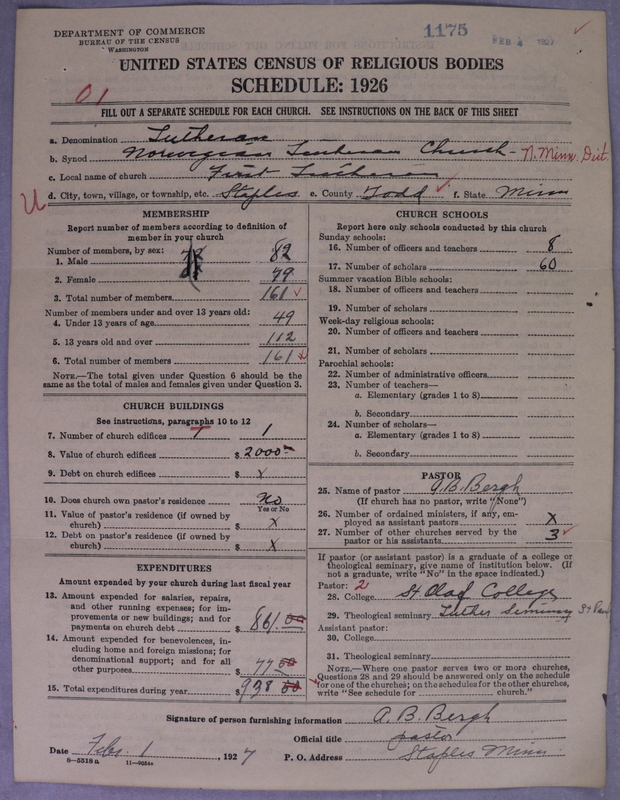 DEPARTMENT OF COMMERCE
BUREAU OF THE CENSUS
WASHINGTON
1175
FEB 4 1927
UNITED STATES CENSUS OF RELIGIOUS BODIES
SCHEDULE: 1926
01
FILL OUT A SEPARATE SCHEDULE FOR EACH CHURCH. SEE INSTRUCTIONS ON THE BACK OF THIS SHEET
a. Denomination Lutheran
b. Synod Norwegian Lutheran Church - N. Minn. Dist.
c. Local name of church First Lutheran
U d. City, town, village, or township, etc. Staples e. County Todd f. State Minn
MEMBERSHIP
Report number of members according to definition of
member in your church
Number of members, by sex:
1. Male 82
2. Female 79
3. Total number of members 161
Number of members under and over 13 years old:
4. Under 13 years of age 49
5. 13 years old and over 112
6. Total number of members 161
NOTE.—The total given under Question 6 should be
same as the total of males and females given under Question 3.
CHURCH BUILDINGS
See instructions, paragraphs 10 to 12
7. Number of church edifices 1
8. Value of church edifices $ 2000
9. Debt on church edifices $ x
10. Does church own pastor's residence No
Yes or No
11. Value of pastor's residence (if owned by
church) $ x
12. Debt on pastor's residence (if owned by
church) $ x
EXPENDITURES
Amount expended by church during last fiscal year
13. Amount expended for salaries, repairs,
and other running expenses; for im-
provements or new buildings; and for
payments on church debt $ 861.00
14. Amount expended for benevolences, in-
cluding home and foreign missions; for
denominational support; and for all
other purposes 77 00
15. Total expenditures during year $ 938 00
CHURCH SCHOOLS
Report here only schools conducted by this church
Sunday schools:
16. Number of officers and teachers 8
17. Number of scholars 60
Summer vacation Bible schools:
18. Number of officers and teachers
19. Number of scholars
Week-day religious schools:
20. Number of officers and teachers
21. Number of scholars
Parochial schools:
22. Number of administrative officers
23. Number of teachers—
a. Elementary (grades 1 to 8)
b. Secondary
24. Number of scholars—
a. Elementary (grades 1 to 8)
b. Secondary
PASTOR
25. Name of pastor A. B. Bergh
(If church has no pastor, write "None")
26. Number of ordained ministers, if any, em-
ployed as assistant pastors X
27. Number of other churches served by the
pastor or his assistants 3
If pastor (or assistant pastor) is a graduate of a college or
theological seminary, give name of institution below. (If
not a graduate, write "No" in the space indicated.)
Pastor: 2
28. College St. Olaf College
29. Theological seminary Luther Seminary St Paul
Assistant pastor:
30. College
31. Theological seminary
NOTE.—Where one pastor serves two or more churches,
Questions 28 and 29 should be answered only on the schedule
for one of the churches; on the schedules for the other churches,
write "See schedule for church."
Signature of person furnishing information A. B. Bergh
Official title pastor
Date Feb. 1, 1927 P. O. Address Staples Minn.
8—5518 a 11—9054a